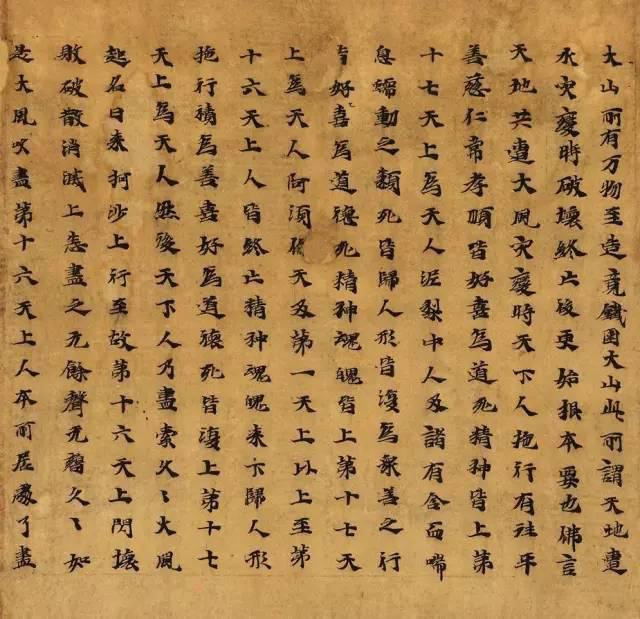 大山所有万物至造竟鐵圍大山此所謂天地遭
水灾變時破壞終亡後更始根本要也佛言
天地共遭大風灾變時天下人拖行有平
善慈仁常孝順皆好喜為道死精神皆上第
十七天上為天人泥梨中人及諸有含血喘
息蠕動之類死皆歸人形皆復為衆善之行
皆好喜為道德死精神魂魄皆上第十七天
上為天人阿須倫天及第一天上以上至第
十六天上人皆終亡精神魂魄来下歸人形
拖行積為善喜好為道德死皆復上第十七
天上為天人然後天下人乃盡索久々大風
起名曰来柯沙上行至故第十六天上閃壞
敗破散消滅上悉盡之无餘聲无久々如
是大風吹盡第十六天上人本所居處了盡